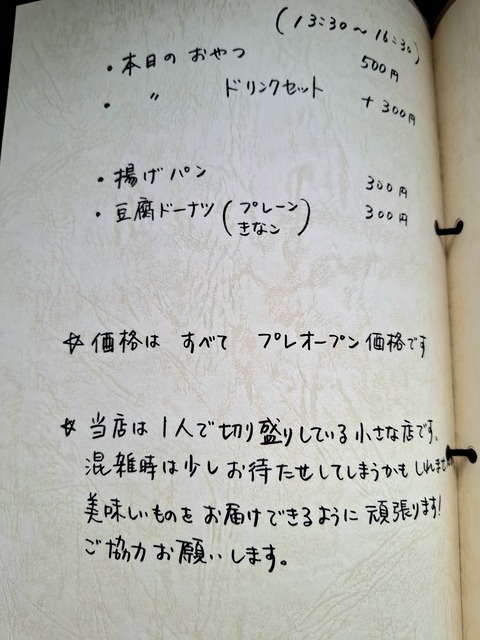 (13:30～16:30)
・本日のおやつ 500円
・〃 ドリンクセット +300円
・揚げパン 300円
・豆腐ドーナツ(プレーン 300円
きなコ)
☆価格は すべて プレオープン価格です
☆当店は1人で切り盛りしている小さな店です。
混雑時は少しお待たせしてしまうかもしれません
美味しいものをお届けできるように頑張ります!
ご協力お願いします。